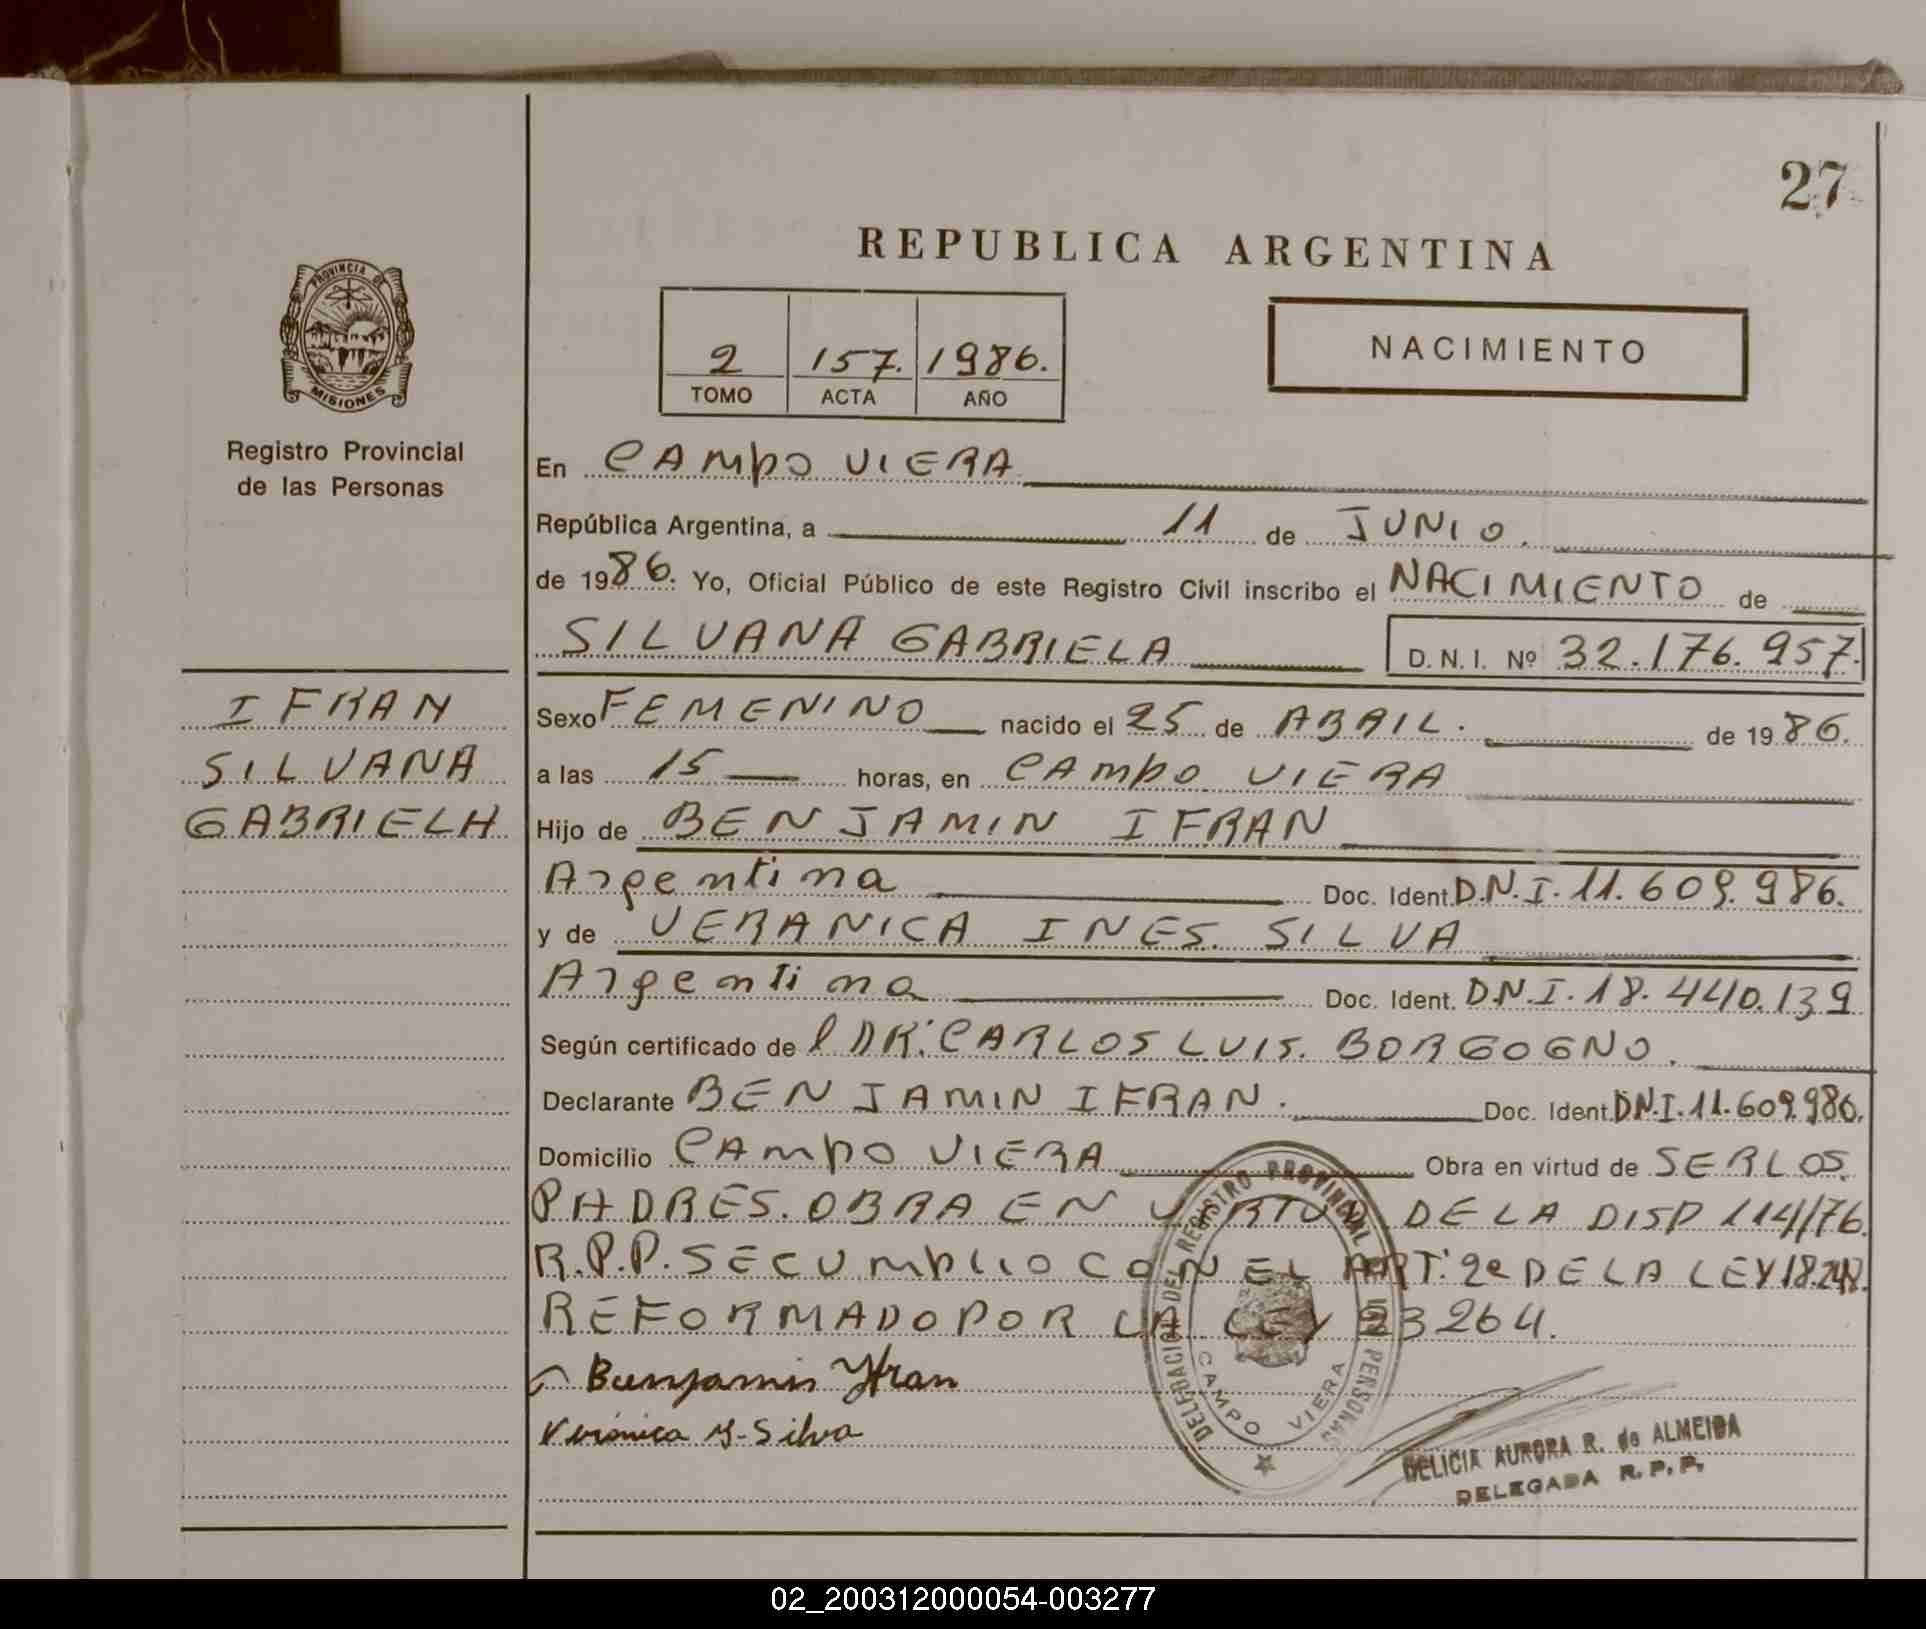 27
REPUBLICA ARGENTINA
PROVINCIA DE
MISIONES
Registro Provincial
de las Personas
2 157. 1986.
TOMO ACTA AÑO
NACIMIENTO
En CAMPO VIERA
República Argentina, a 11 de JUNIO.
de 1986. Yo, Oficial Público de este Registro Civil inscribo el NACIMIENTO de
SILVANA GABRIELA D. N. I. Nº 32.176.957.
IFRAN
SILVANA
GABRIELA
Sexo FEMENINO nacido el 25 de ABRIL. de 1986.
a las 15 horas, en CAMPO VIERA
Hijo de BENJAMIN IFRAN
Argentina Doc. Ident. D.N.I. 11.609.986.
y de VERANICA INES. SILVA
Argentina Doc. Ident. D.N.I. 18.440.139
Según certificado de l DR. CARLOS LUIS. BORGOGNO.
Declarante BENJAMIN IFRAN. Doc. Ident. D.N.I. 11.609.986.
Domicilio CAMPO VIERA Obra en virtud de SER LOS.
PADRES. OBRA EN VIRTUD DE LA DISP 114/76.
R.P.P. SE CUMPLIO CON EL ART. 2º DE LA LEY 18.248.
REFORMADO POR LA LEY 23264.
Benjamin Yfran
Verónica Y. Silva
DELEGACION DEL REGISTRO PROVINCIAL DE PERSONAS
CAMPO VIERA
DELICIA AURORA R. de ALMEIDA
DELEGADA R. P. P.
02_200312000054-003277